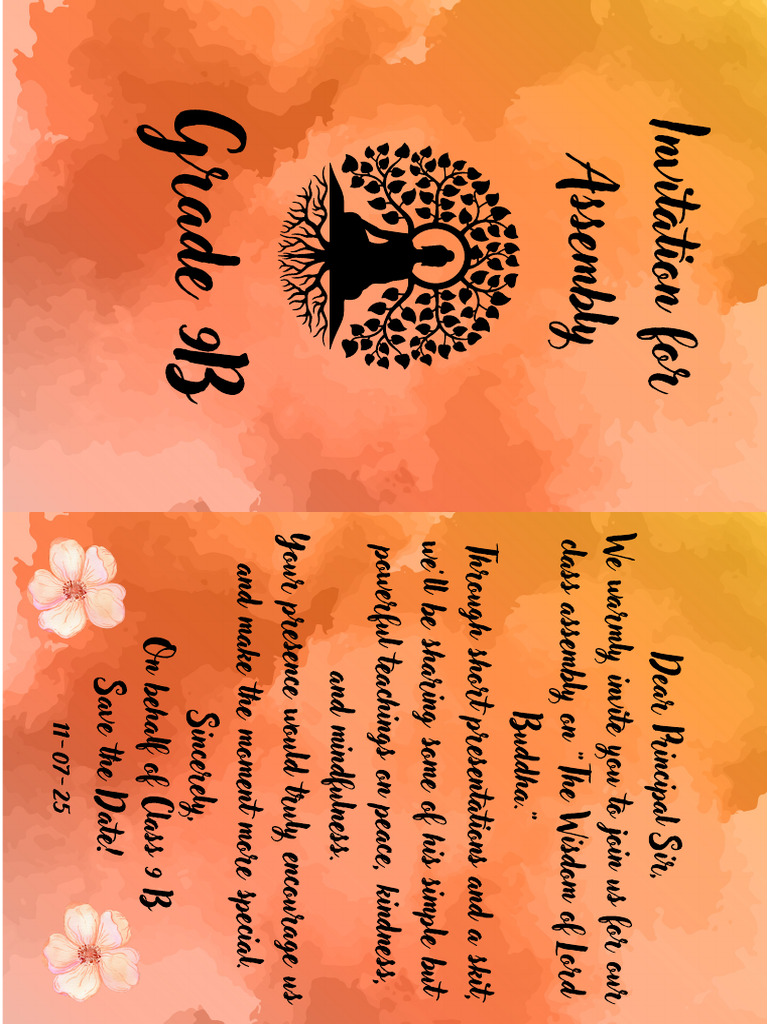 Invitation for
Assembly
Grade 9B
Dear Principal Sir,
We warmly invite you to join us for our
class assembly on "The Wisdom of Lord
Buddha."
Through short presentations and a skit,
we'll be sharing some of his simple but
powerful teachings on peace, kindness,
and mindfulness.
Your presence would truly encourage us
and make the moment more special.
Sincerely,
On behalf of Class 9 B
Save the Date!
11-07-25